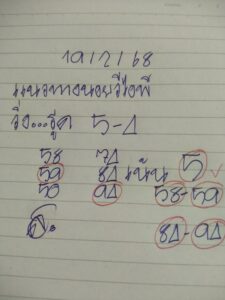 19/2/68
แนวทางหอยวีไอพี
วิ่ง...รูด 5-4
58 74
59 84 เน้น 5
50 94 58-59
84-94